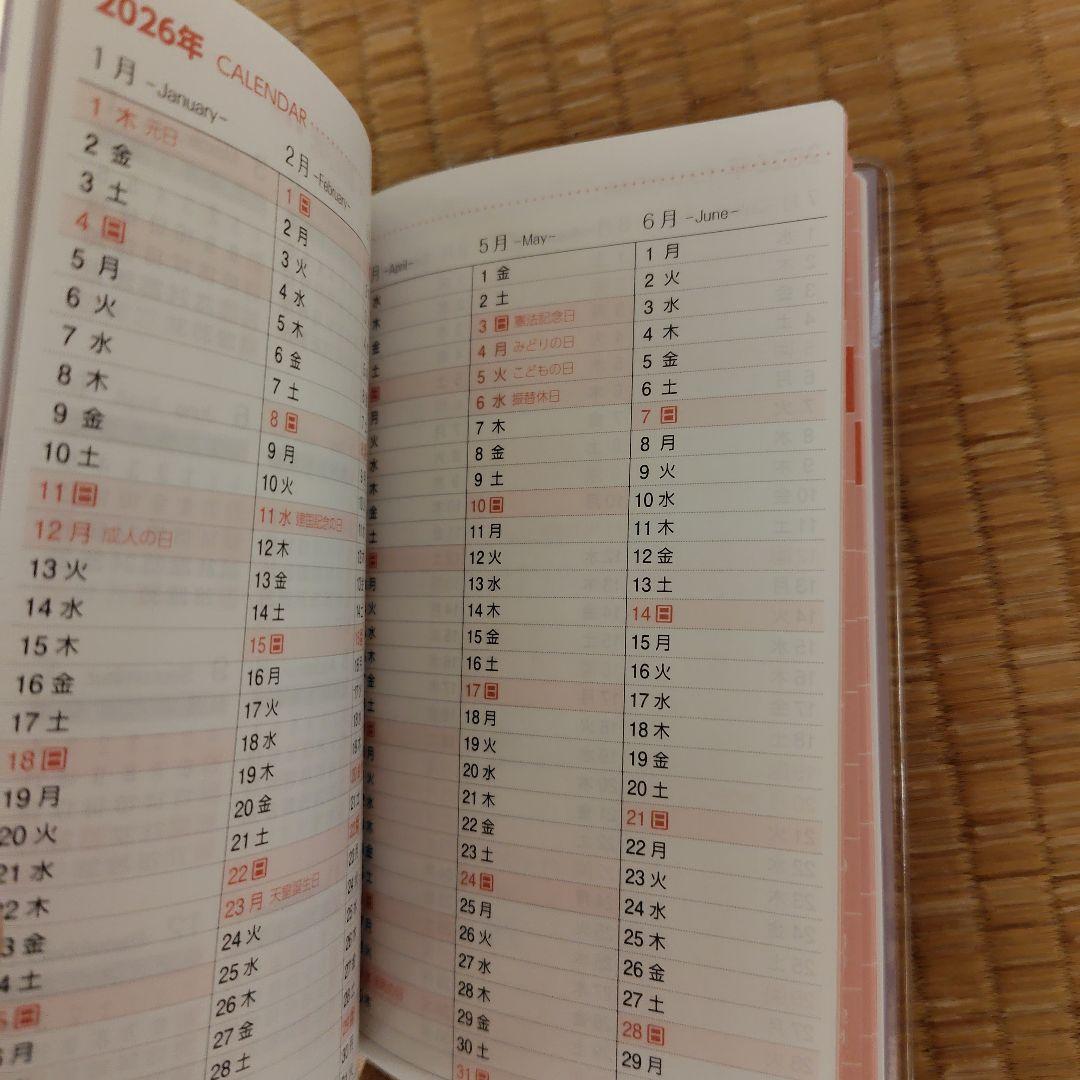 2026年 CALENDAR
1月 -January-
1 木 元日
2 金
3 土
4 日
5 月
6 火
7 水
8 木
9 金
10 土
11 日
12 月 成人の日
13 火
14 水
15 木
16 金
17 土
18 日
19 月
20 火
21 水
22 木
3 金
4 土
日
月
2月 -February-
1 日
2 月
3 火
4 水
5 木
6 金
7 土
8 日
9 月
10 火
11 水 建国記念の日
12 木
13 金
14 土
15 日
16 月
17 火
18 水
19 木
20 金
21 土
22 日
23 月 天皇誕生日
24 火
25 水
26 木
27 金
28 土
月 -April-
水
木
金
土
日
月
火
水
木
金
土
日
月
火
水
木
金
土
日
月
火
水
木
金
土
5月 -May-
1 金
2 土
3 日 憲法記念日
4 月 みどりの日
5 火 こどもの日
6 水 振替休日
7 木
8 金
9 土
10 日
11 月
12 火
13 水
14 木
15 金
16 土
17 日
18 月
19 火
20 水
21 木
22 金
23 土
24 日
25 月
26 火
27 水
28 木
29 金
30 土
31 日
6月 -June-
1 月
2 火
3 水
4 木
5 金
6 土
7 日
8 月
9 火
10 水
11 木
12 金
13 土
14 日
15 月
16 火
17 水
18 木
19 金
20 土
21 日
22 月
23 火
24 水
25 木
26 金
27 土
28 日
29 月